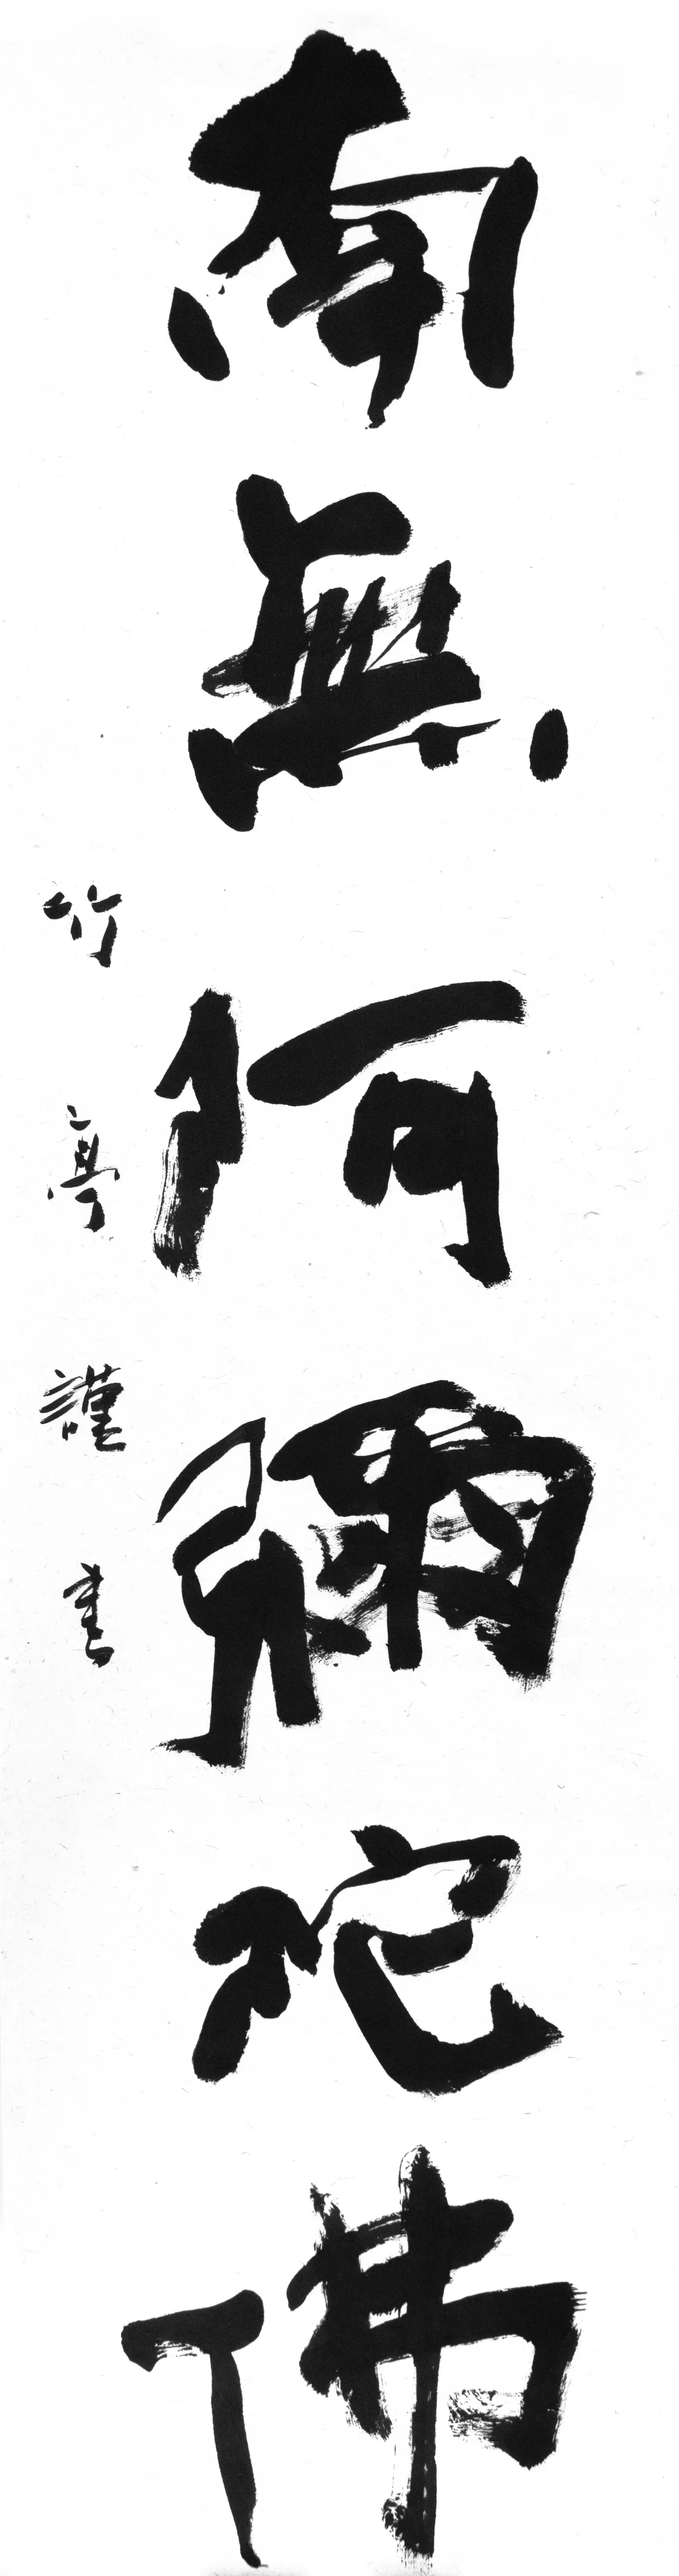 南無阿彌陀佛
竹亭謹書